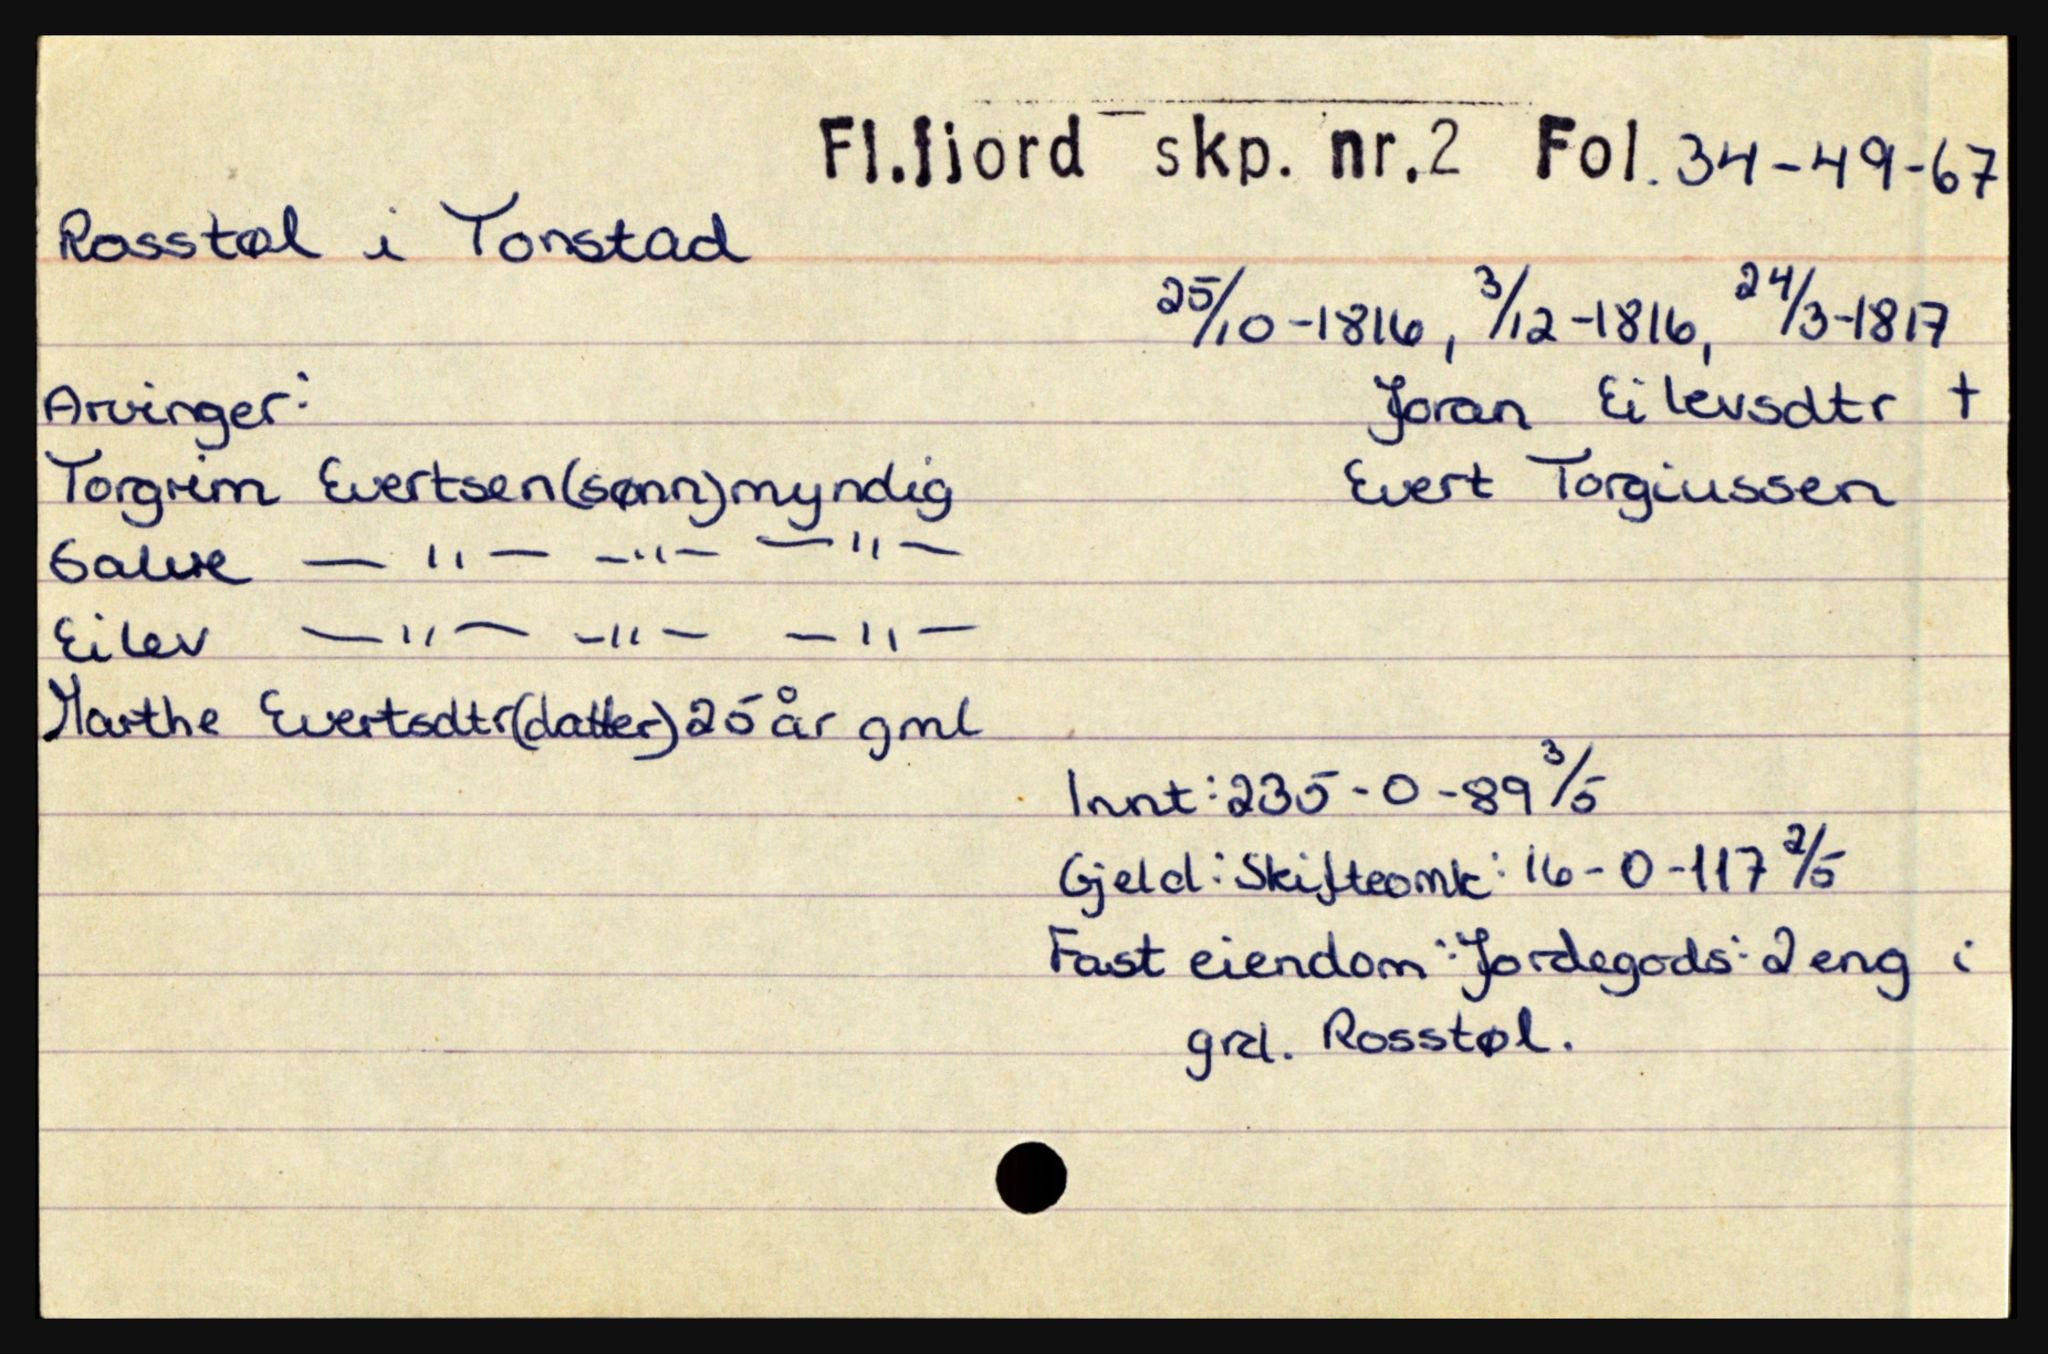 Fl.fjord skp. nr.2 Fol. 34-49-67
Rosstøl i Tonstad
25/10-1816, 3/12-1816, 24/3-1817
Arvinger:
Joran Eilevsdtr †
Torgrim Evertsen (sønn) myndig
Evert Torgiussen
Salve —"— —"— —"—
Eilev —"— —"— —"—
Marthe Evertsdtr (datter) 25 år gml
Innt: 235-0-89 3/5
Gjeld: Skifteomk: 16-0-117 2/5
Fast eiendom: Jordegods: 2 eng i
grd. Rosstøl.